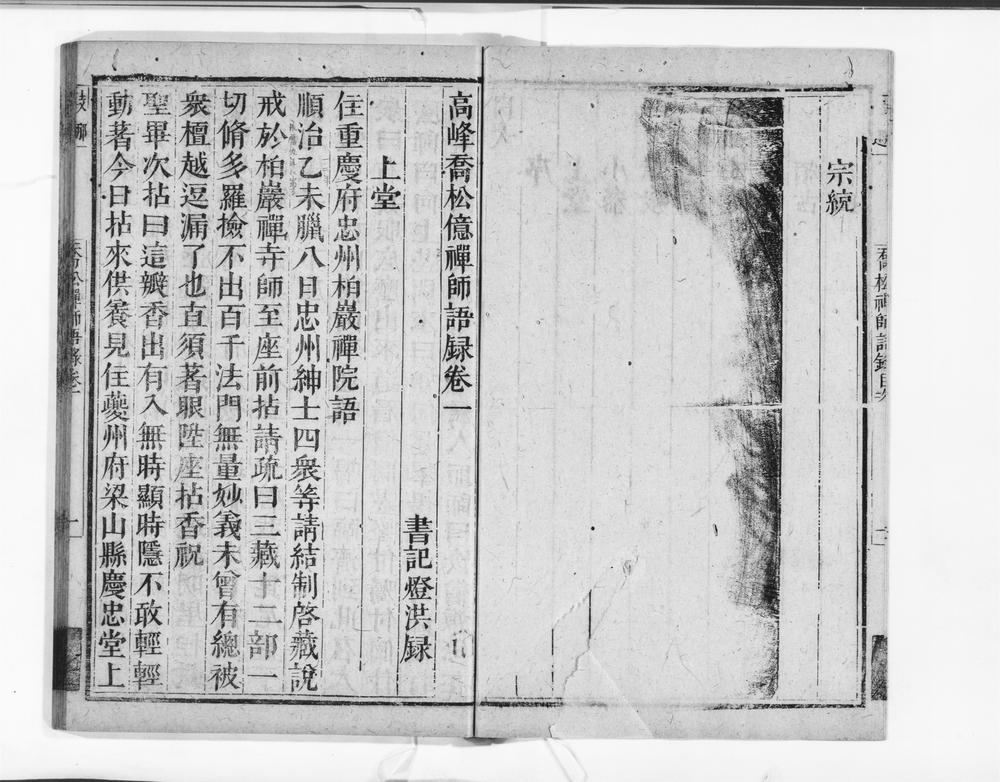 宗統
喬松禪師語錄目次
高峰喬松億禪師語録卷一
書記燈洪録
上堂
住重慶府忠州柏巖禪院語
順治乙未臘八日忠州紳士四衆等請結制啓藏說
戒於柏巖禪寺師至座前拈請疏曰三藏十二部一
切脩多羅撿不出百千法門無量妙義未曾有總被
衆檀越逗漏了也直須著眼陞座拈香祝
聖畢次拈曰這瓣香出有入無時顯時隱不敢輕輕
動著今日拈來供養見住夔州府梁山縣慶忠堂上
喬松禪師語録卷一